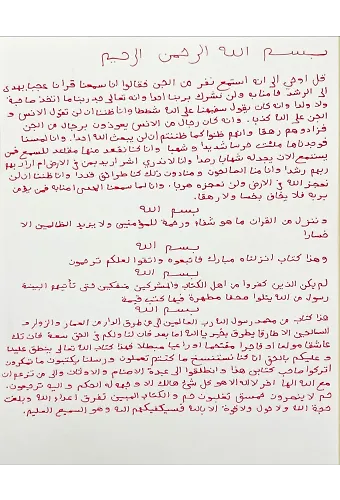 بسم الله الرحمن الرحيم
قل اوحي الى انه استمع نفر من الجن فقالوا انا سمعنا قرأنا عجبا يهدى
الى الرشد فأمنا به ولن نشرك بربنا احدا وانه تعالى جد ربنا ما اتخذ صاحبة
ولا ولدا وانه كان يقول سفيهنا على الله شططا وانا ظننا ان لن تقول الانس و
الجن على الله كذبا. وانه كان رجال من الانس يعوذون برجال من الجن
فزادوهم رهقا وانهم ظنوا كما ظننتم ان لن يبعث الله احدا. وانا لمسنا
فوجدناها ملئت حرسا شديدا و شهبا وانا كنا نقعد منها مقاعد للسمع فمن
يستمع الان يجد له شهابا رصدا وانا لا ندري اشر اريد بمن في الارض ام اراد بهم
ربهم رشدا وانا منا الصالحون ومنا دون ذلك كنا طرائق قددا وانا ظننا ان لن
نعجز الله في الارض ولن نعجزه هربا. وانا لما سمعنا الهدى امنا به فمن يؤمن
بربه فلا يخاف بخسا ولا رهقا.
بسم الله
وننزل من القران ما هو شفاء ورحمة للمؤمنين ولا يزيد الظالمين الا
خسارا
بسم الله
وهذا كتاب انزلناه مبارك فاتبعوه واتقوا لعلكم ترحمون
بسم الله
لم يكن الذين كفروا من اهل الكتاب والمشركين منفكين حتى تأتيهم البينة
رسول من الله يتلوا صحفا مطهرة فيها كتب قيمة
بسم الله
هذا كتاب من محمد رسول الله رب العالمين الى من طرق الدار من العمار والزوار و
الصالحين الا طارقا يطرق بخير يا الله اما بعد فان لنا ولكم في الحق سعة فان تك
عاشقا مولعا او فاجرا مقتحما او راعيا مبطلا فهذا كتاب الله تعالى ينطق علينا
و عليكم بالحق انا كنا نستنسخ ما كنتم تعملون ورسلنا يكتبون ما تمكرون
اتركوا صاحب كتابي هذا وانطلقوا الى عبدة الاصنام والاوثان والى من تزعم ان
مع الله الها اخر لا اله الا هو كل شئ هالك الا وجهه له الحكم و اليه ترجعون.
حم لا ينصرون حمسق تغلبون حم والكتاب المبين تفرق اعداء الله وبلغت
حجة الله ولا حول ولا قوة الا بالله فسيكفيكهم الله وهو السميع العليم.